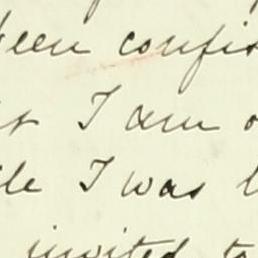 been confis
I am
I was
invited to